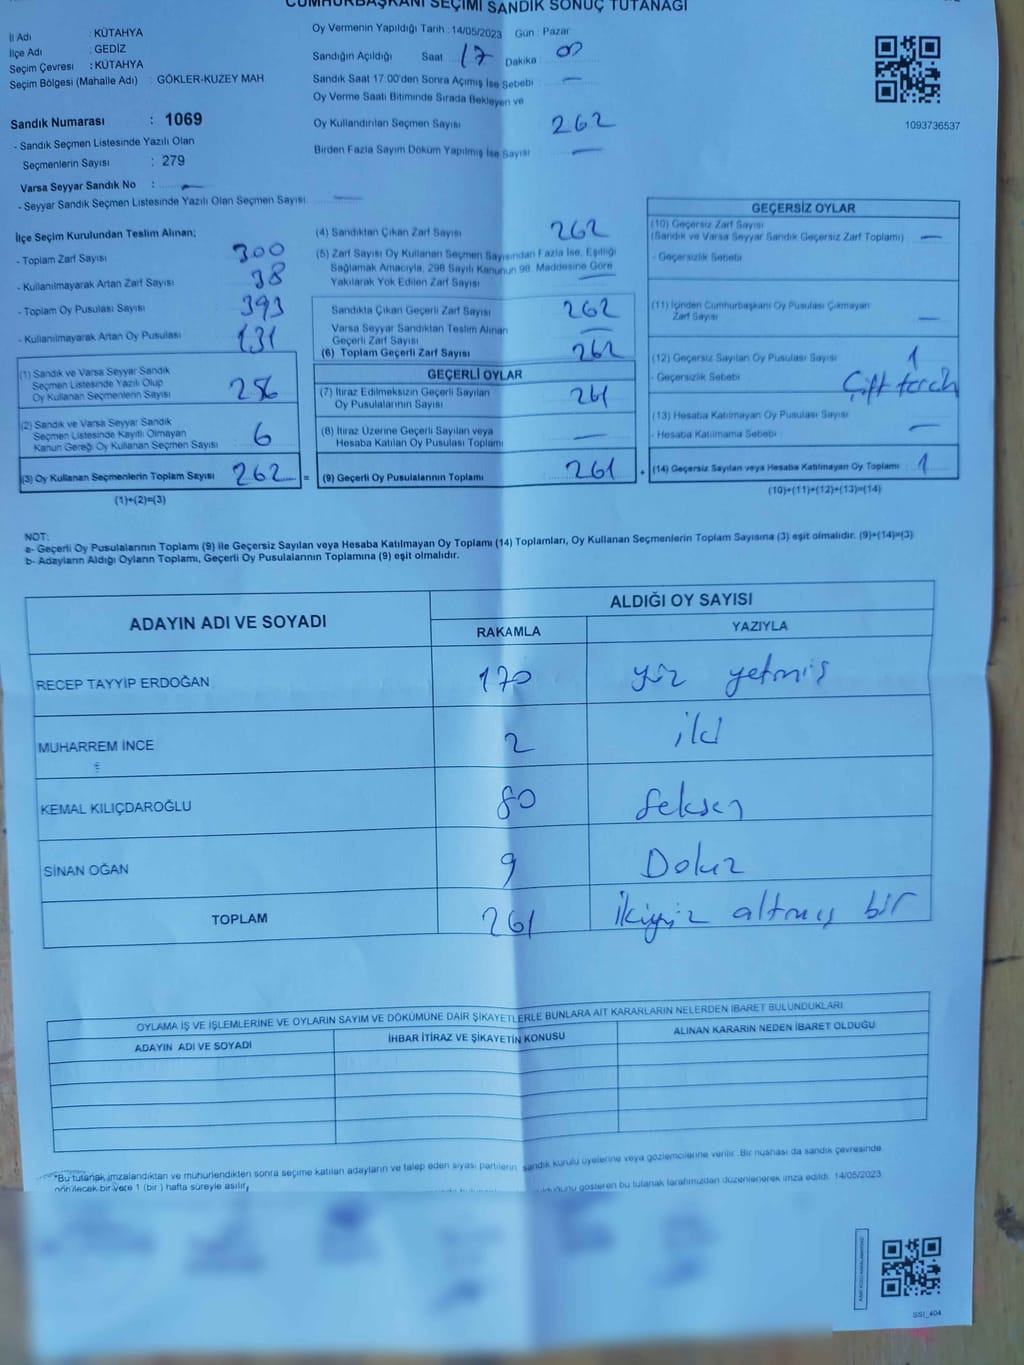 CUMHURBAŞKANI SEÇİMİ SANDIK SONUÇ TUTANAĞI
İl Adı : KÜTAHYA
İlçe Adı : GEDİZ
Seçim Çevresi : KÜTAHYA
Seçim Bölgesi (Mahalle Adı) : GÖKLER-KUZEY MAH.
Sandık Numarası : 1069
- Sandık Seçmen Listesinde Yazılı Olan
Seçmenlerin Sayısı : 279
Varsa Seyyar Sandık No : —
- Seyyar Sandık Seçmen Listesinde Yazılı Olan Seçmen Sayısı: —
Oy Vermenin Yapıldığı Tarih : 14/05/2023 Gün : Pazar
Sandığın Açıldığı Saat 17 Dakika : 00
Sandık Saat 17:00'den Sonra Açımış İse Sebebi : —
Oy Verme Saati Bitiminde Sırada Bekleyen ve
Oy Kullandırılan Seçmen Sayısı 262
Birden Fazla Sayım Döküm Yapılmış İse Sayısı —
1093736537
İlçe Seçim Kurulundan Teslim Alınan;
- Toplam Zarf Sayısı 300
- Kullanılmayarak Artan Zarf Sayısı 38
- Toplam Oy Pusulası Sayısı 393
- Kullanılmayarak Artan Oy Pusulası 131
(1) Sandık ve Varsa Seyyar Sandık
Seçmen Listesinde Yazılı Olup
Oy Kullanan Seçmenlerin Sayısı 256
(2) Sandık ve Varsa Seyyar Sandık
Seçmen Listesinde Kayıtlı Olmayan
Kanun Gereği Oy Kullanan Seçmen Sayısı 6
(3) Oy Kullanan Seçmenlerin Toplam Sayısı 262 =
(1)+(2)=(3)
(4) Sandıktan Çıkan Zarf Sayısı 262
(5) Zarf Sayısı Oy Kullanan Seçmen Sayısından Fazla İse, Eşitliği
Sağlamak Amacıyla, 298 Sayılı Kanunun 98. Maddesine Göre
Yakılarak Yok Edilen Zarf Sayısı —
Sandıkta Çıkan Geçerli Zarf Sayısı 262
Varsa Seyyar Sandıktan Teslim Alınan
Geçerli Zarf Sayısı —
(6) Toplam Geçerli Zarf Sayısı 262
GEÇERLİ OYLAR
(7) İtiraz Edilmeksizin Geçerli Sayılan
Oy Pusulalarının Sayısı 261
(8) İtiraz Üzerine Geçerli Sayılan veya
Hesaba Katılan Oy Pusulası Toplamı —
(9) Geçerli Oy Pusulalarının Toplamı 261 +
GEÇERSİZ OYLAR
(10) Geçersiz Zarf Sayısı
(Sandık ve Varsa Seyyar Sandık Geçersiz Zarf Toplamı) —
- Geçersizlik Sebebi
(11) İçinden Cumhurbaşkanı Oy Pusulası Çıkmayan
Zarf Sayısı —
(12) Geçersiz Sayılan Oy Pusulası Sayısı 1
- Geçersizlik Sebebi Çift tercih
(13) Hesaba Katılmayan Oy Pusulası Sayısı —
- Hesaba Katılmama Sebebi
(14) Geçersiz Sayılan veya Hesaba Katılmayan Oy Toplamı 1
(10)+(11)+(12)+(13)=(14)
NOT:
a- Geçerli Oy Pusulalarının Toplamı (9) ile Geçersiz Sayılan veya Hesaba Katılmayan Oy Toplamı (14) Toplamları, Oy Kullanan Seçmenlerin Toplam Sayısına (3) eşit olmalıdır. (9)+(14)=(3)
b- Adayların Aldığı Oyların Toplamı, Geçerli Oy Pusulalarının Toplamına (9) eşit olmalıdır.
ADAYIN ADI VE SOYADI ALDIĞI OY SAYISI
RAKAMLA YAZIYLA
RECEP TAYYİP ERDOĞAN 170 yüz yetmiş
MUHARREM İNCE 2 iki
KEMAL KILIÇDAROĞLU 80 Seksen
SİNAN OĞAN 9 Dokuz
TOPLAM 261 İkiyüz altmış bir
OYLAMA İŞ VE İŞLEMLERİNE VE OYLARIN SAYIM VE DÖKÜMÜNE DAİR ŞİKAYETLERLE BUNLARA AİT KARARLARIN NELERDEN İBARET BULUNDUKLARI
ADAYIN ADI VE SOYADI İHBAR İTİRAZ VE ŞİKAYETİN KONUSU ALINAN KARARIN NEDEN İBARET OLDUĞU
*Bu tutanak imzalandıktan ve mühürlendikten sonra seçime katılan adayların ve talep eden siyasi partilerin sandık kurulu üyelerine veya gözlemcilerine verilir. Bir nüshası da sandık çevresinde
görülecek bir yere 1 (bir) hafta süreyle asılır.
olduğunu gösteren bu tutanak tarafımızdan düzenlenerek imza edildi. 14/05/2023
SSI_404